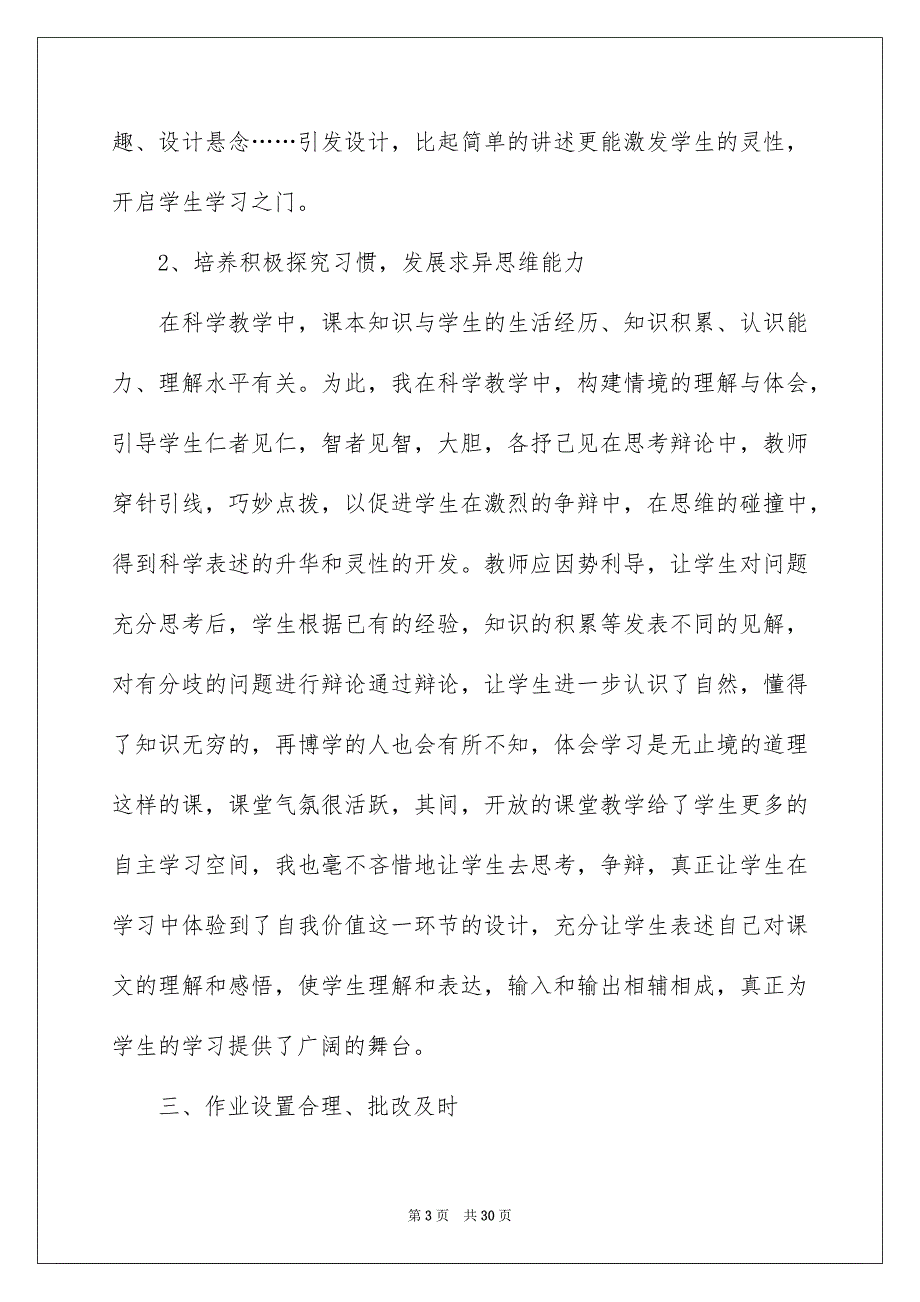 趣、设计悬念……引发设计，比起简单的讲述更能激发学生的灵性，
开启学生学习之门。
2、培养积极探究习惯，发展求异思维能力
在科学教学中，课本知识与学生的生活经历、知识积累、认识能
力、理解水平有关。为此，我在科学教学中，构建情境的理解与体会，
引导学生仁者见仁，智者见智，大胆，各抒己见在思考辩论中，教师
穿针引线，巧妙点拨，以促进学生在激烈的争辩中，在思维的碰撞中，
得到科学表述的升华和灵性的开发。教师应因势利导，让学生对问题
充分思考后，学生根据已有的经验，知识的积累等发表不同的见解，
对有分歧的问题进行辩论通过辩论，让学生进一步认识了自然，懂得
了知识无穷的，再博学的人也会有所不知，体会学习是无止境的道理
这样的课，课堂气氛很活跃，其间，开放的课堂教学给了学生更多的
自主学习空间，我也毫不吝惜地让学生去思考，争辩，真正让学生在
学习中体验到了自我价值这一环节的设计，充分让学生表述自己对课
文的理解和感悟，使学生理解和表达，输入和输出相辅相成，真正为
学生的学习提供了广阔的舞台。
三、作业设置合理、批改及时
第 3 页 共 30 页